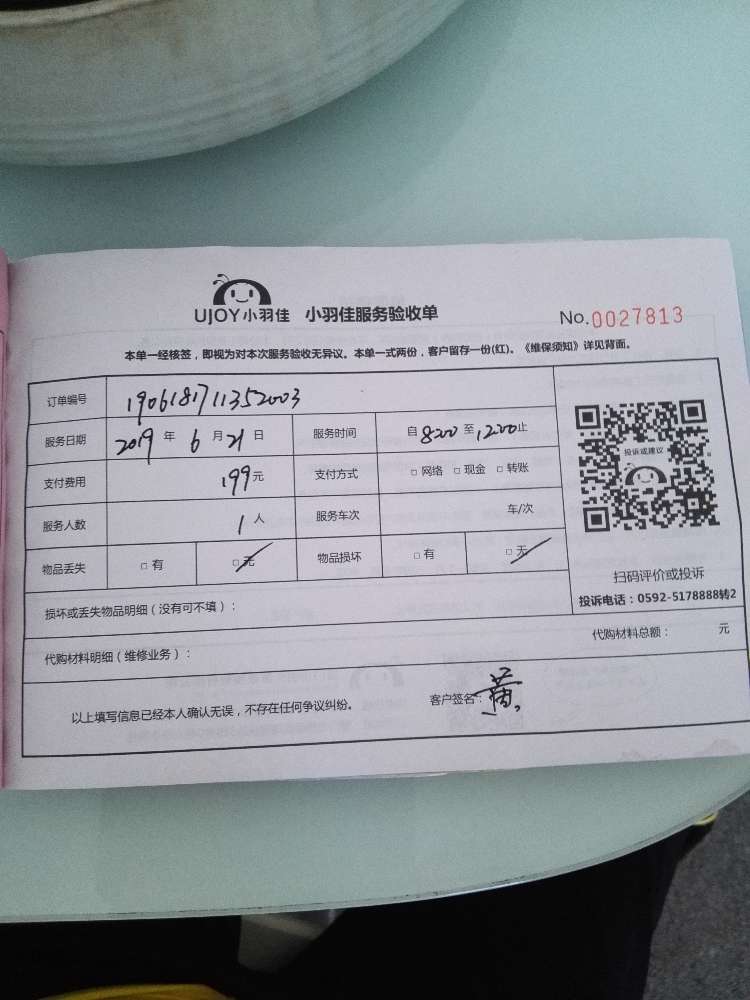 UJOY小羽佳 小羽佳服务验收单 No.0027813
本单一经核签，即视为对本次服务验收无异议。本单一式两份，客户留存一份(红)。《维保须知》详见背面。
订单编号 1906181711352003
服务日期 2019 年 6 月 21 日 服务时间 自 8:00 至 12:00 止
支付费用 199元 支付方式 □ 网络 □ 现金 □ 转账
服务人数 1 人 服务车次 车/次
物品丢失 □ 有 □ 无 物品损坏 □ 有 □ 无
投诉或建议
扫码评价或投诉
投诉电话：0592-5178888转2
损坏或丢失物品明细（没有可不填）：
代购材料明细（维修业务）： 代购材料总额： 元
以上填写信息已经本人确认无误，不存在任何争议纠纷。 客户签名：黄